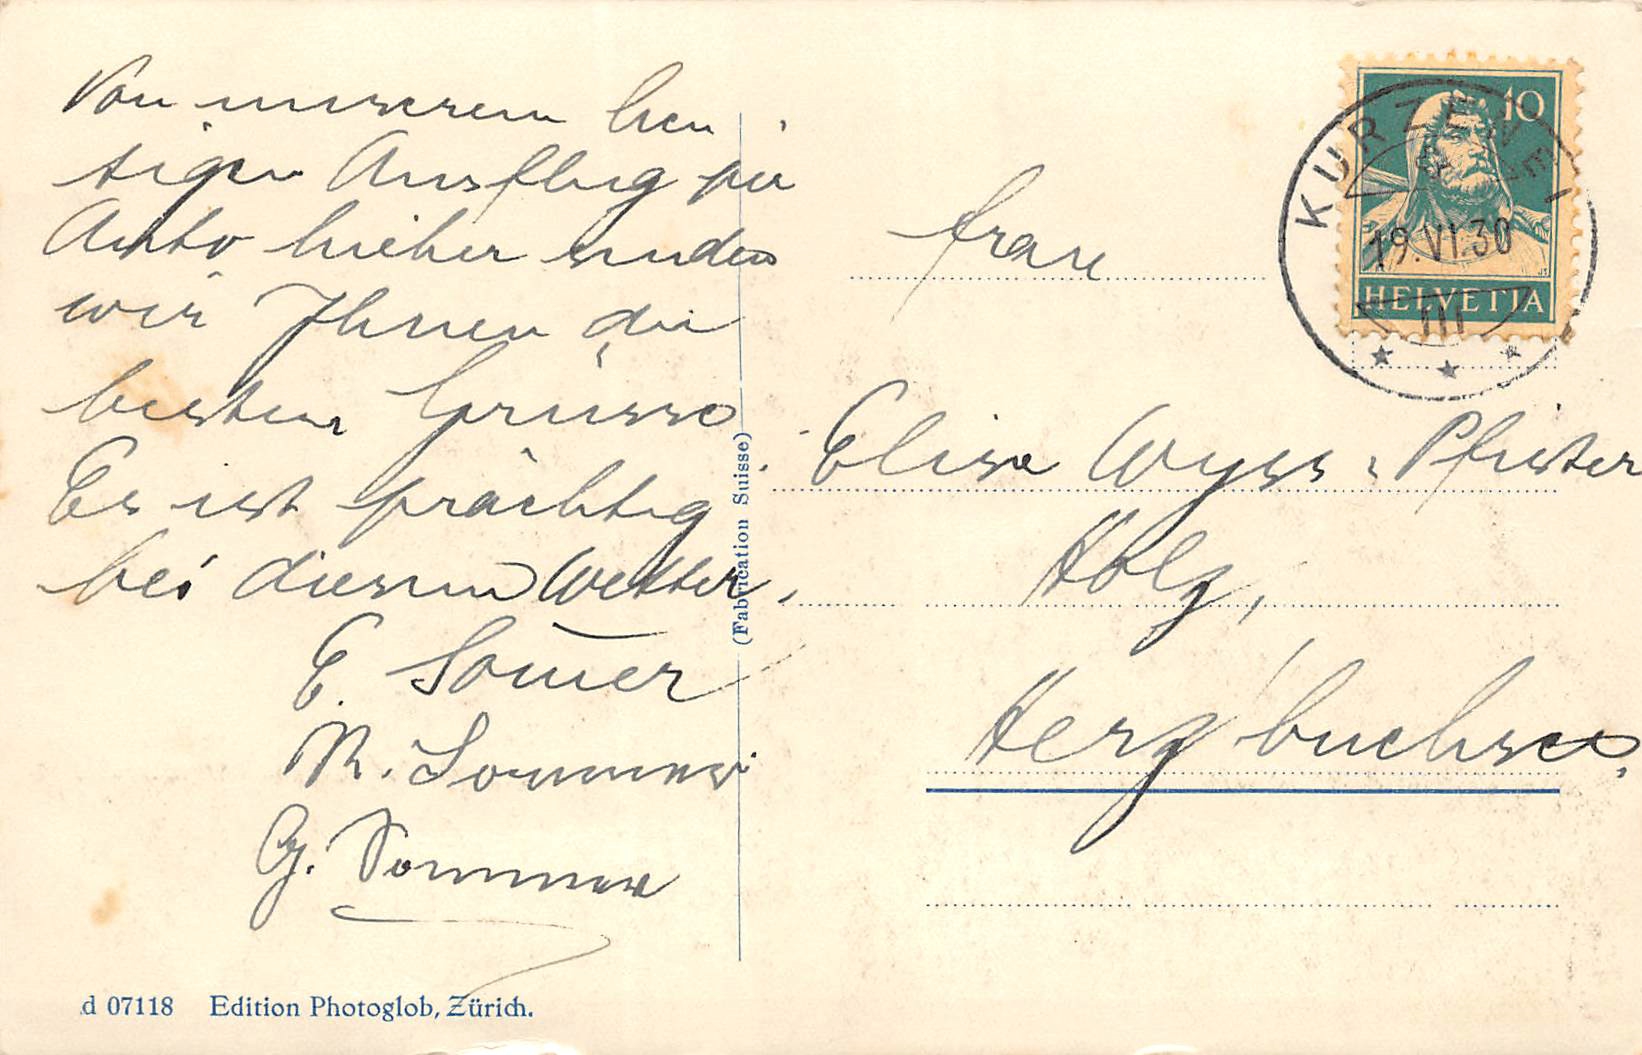 Von unserem heu
tigen Ausflug per
Auto hieher senden
wir Ihnen die
besten Grüsse
Es ist prächtig
bei diesem Wetter.
E. Somer
M. Sommer
G. Sommer
d 07118 Edition Photoglob, Zürich.
(Fabrication Suisse)
10
HELVETIA
KURZENEI
19.VI.30
III
Frau
Elise Wyss-Pfister
Holz,
Herzbuchsee